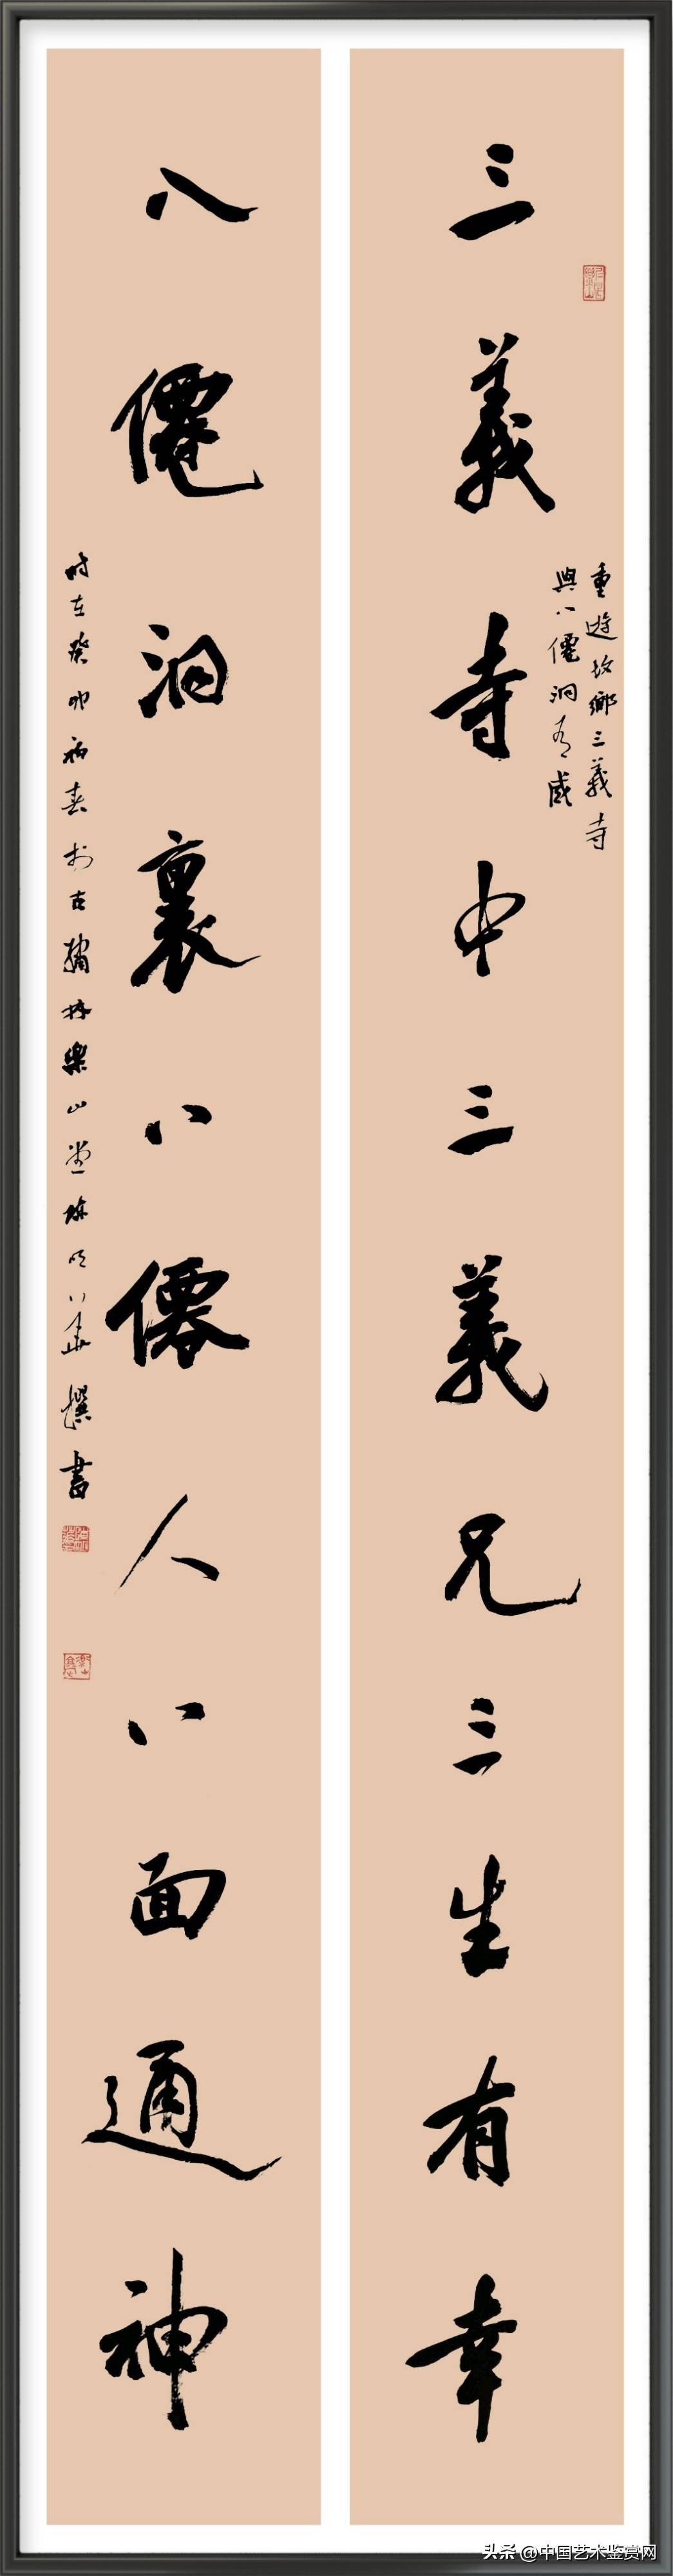 三義寺中三義兄三生有幸
重遊故鄉三義寺
與八僊洞有感
八僊洞裏八僊人八面通神
时在癸卯初春於古繡林樂山堂陳華撰書
头条 @中国艺术鉴赏网